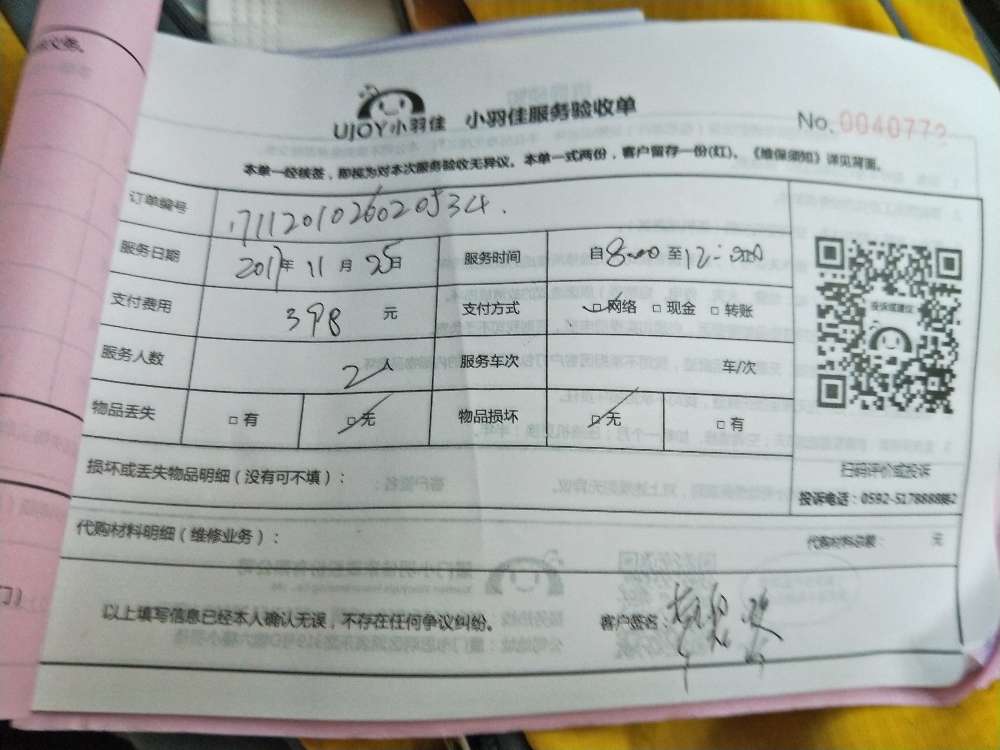 UJOY小羽佳 小羽佳服务验收单
No. 0040772
本单一经核签，即视为对本次服务验收无异议。本单一式两份，客户留存一份(红)。《维保须知》详见背面。
订单编号 1711201026020534.
服务日期 2017年 11月 25日 服务时间 自8:00至12:00
支付费用 398 元 支付方式 □网络 □现金 □转账
服务人数 2人 服务车次 车/次
物品丢失 □有 □无 物品损坏 □无 □有
损坏或丢失物品明细（没有可不填）：
扫码评价或投诉
投诉电话：0592-5178888
代购材料明细（维修业务）： 代购材料总额： 元
以上填写信息已经本人确认无误，不存在任何争议纠纷。 客户签名：